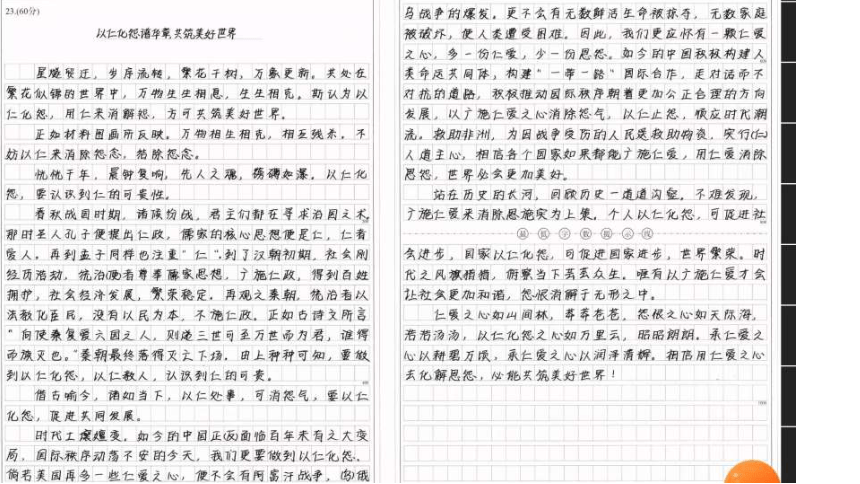 23.(60分)
以仁化怨清弊气,共筑美好世界
星晓轻迁,岁序流转,繁花千树,万象更新。共处在
繁花似锦的世界中,万物生生相息,生生相克。斯认为以
仁化怨,用仁来消解怨,方可共筑美好世界。
正如材料图画所反映。万物相生相克,相互残杀。不
妨以仁来消除怨念,拾除怨念。
恍惚千年,晨钟复响,先人之魂,薪碑如瀑。以仁化
怨,要认识到仁的可贵性。
春秋战国时期,诸侯纷战,君主们都在寻求治国之术,
那时圣人孔子便提出仁政,儒家的核心思想便是仁,仁者
爱人。再到孟子同样也注重“仁”,到了汉朝初期,社会刚
经历活动,统治便者尊奉儒家思想,广施仁政,得到百姓
拥护,社会经济发展,繁荣稳定。再观之秦朝,统治者以
法教化臣民,没有以民为本,不施仁政。正如古诗文所言
“向使秦复爱六国之人,则递三世可至万世而为君,谁得
而族灭也。”秦朝最终落得灭亡下场。由上种种可知,要做
到以仁化怨,以仁教人,认识到仁的可贵。
借古喻今,诸如当下,以仁处事,可消怨气,要以仁
化怨,促进共同发展。
时代工嬗变。如今的中国正面临百年未有之大变
局,国际秩序动荡不安的今天,我们更要做到以仁化怨。
倘若美国再多一些仁爱之心,便不会有阿富汗战争,俄
乌战争的爆发。更不会有无数鲜活生命被掠夺,无数家庭
被破坏,使人类遭受困难。因此,我们更应怀有一颗仁爱
之心,多一份仁爱,少一份恩怨。如今的中国积极构建人
类命运共同体,构建“一带一路”国际合作,走对话而不
对抗的道路,积极推动国际秩序朝着更加公正合理的方向
发展,以广施仁爱之心消除怨气,以仁止怨,顺应时代潮
流。救助非洲,为因战争受伤的人民送救助物资。实行
人道主心,相信各个国家如果都能广施仁爱,用仁爱消除
恩怨,世界必会更加美好。
站在历史的长河,回顾历史一道道沟壑。不难发现,
广施仁爱来消除恩施实为上策。个人以仁化怨,可促进社
最低字数提示线
会进步,国家以仁化怨,可促进国家进步,世界繁荣。时
代之风猎猎,俯察当下芸芸众生。唯有以广施仁爱才会
让社会更加和谐,怨恨消解于无形之中。
仁爱之心如山间林,莽莽苍苍,怨恨之心如天际海,
茫茫汤汤,以仁化怨之心如万里云,昭昭朗朗。承仁爱之
心以耕碧万顷,承仁爱之心以润泽清辉。相信用仁爱之心
去化解恩怨,必能共筑美好世界!